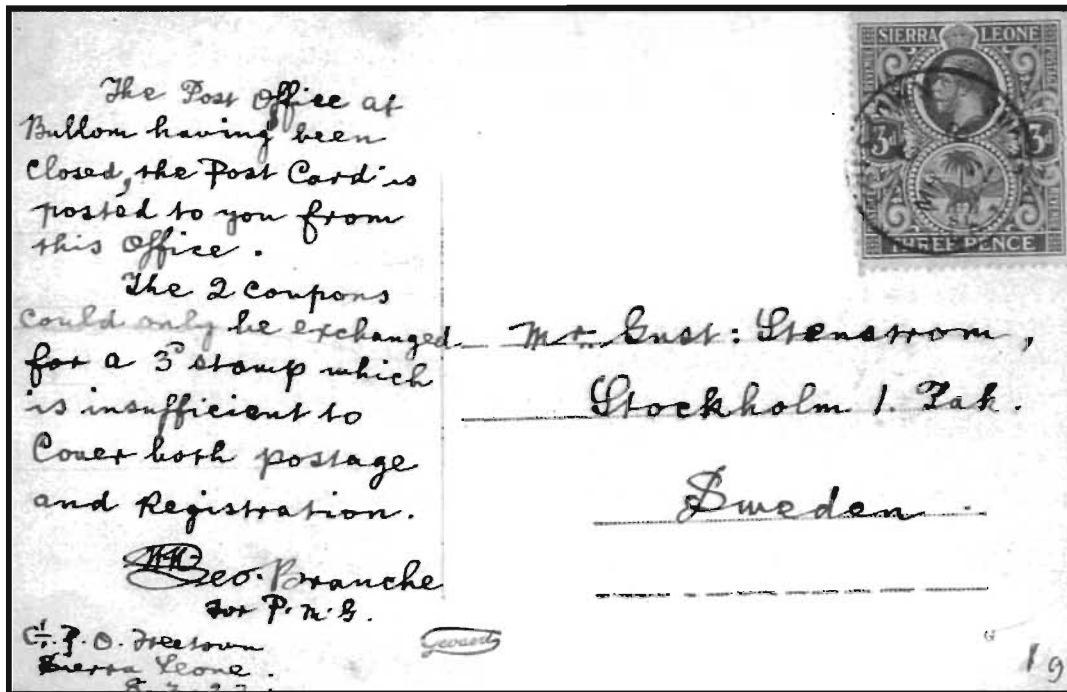 The Post Office at
Bullom having been
closed, the Post Card is
posted to you from
this Office.
The 2 coupons
could only be exchanged
for a 3d stamp which
is insufficient to
Cover both postage
and Registration.
Geo. Branche
for P.M.G.
G.P.O. Freetown
Sierra Leone.
SIERRA LEONE
3d 3d
THREE PENCE
Mr. Gust: Stenstrom,
Stockholm 1. Pak.
Sweden.
Gevaert
19